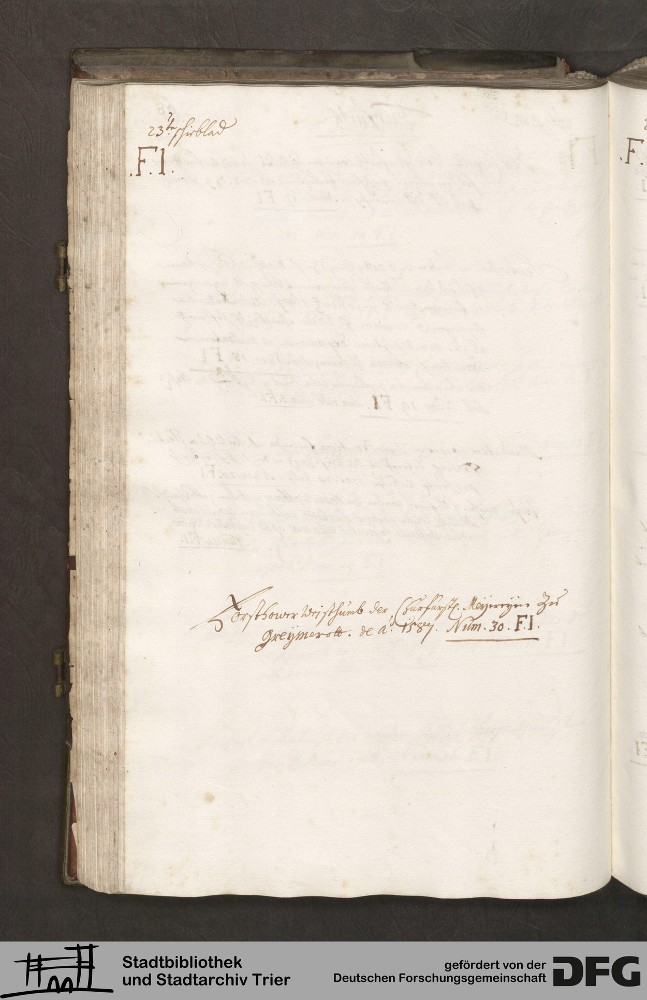 23te schieblad
.F.I.
.F.
Forsthower Weisthumb der Churfürstl. Meyereyen zu
Greymerott. de aō 1587. Num. 30. F.I.
Stadtbibliothek
und Stadtarchiv Trier
gefördert von der
Deutschen Forschungsgemeinschaft
DFG